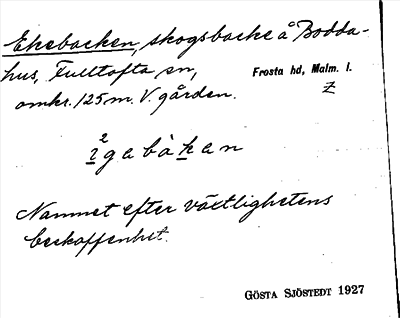 Ekebacken, skogsbacke å Bodda-
hus, Fulltofta sn,
Frosta hd, Malm. l.
omkr. 125 m. V. gården.
Z
2
gabàkan
Namnet efter växtlighetens
beskaffenhet.
GÖSTA SJÖSTEDT 1927